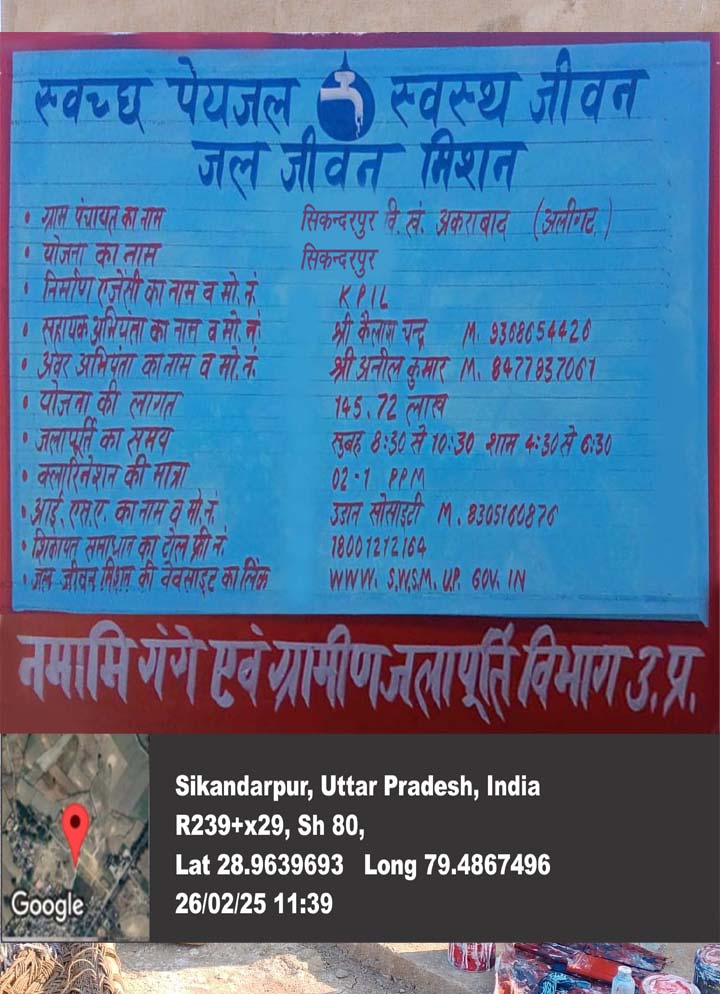 स्वच्छ पेयजल स्वस्थ जीवन
जल जीवन मिशन
• ग्राम पंचायत का नाम सिकन्दरपुर वि. खं. अकराबाद (अलीगढ़)
• योजना का नाम सिकन्दरपुर
• निर्माण एजेंसी का नाम व मो. नं. KPIL
• सहायक अभियंता का नाम व मो. नं. श्री कैलाश चन्द्र M. 9368654426
• अवर अभियंता का नाम व मो. नं. श्री अनील कुमार M. 8477937061
• योजना की लागत 145.72 लाख
• जलापूर्ति का समय सुबह 8:30 से 10:30 शाम 4:30 से 6:30
• क्लारिनेशन की मात्रा 02-1 PPM
• आई. एस.ए. का नाम व मो. नं. उडान सोसाइटी M. 8305160876
• शिकायत समाधान का टोल फ्री नं. 18001212164
• जल जीवन मिशन की वेबसाइट का लिंक WWW. S.W.S.M. U.P. GOV. IN
नमामि गंगे एवं ग्रामीण जलापूर्ति विभाग उ. प्र.
Sikandarpur, Uttar Pradesh, India
R239+x29, Sh 80,
Lat 28.9639693 Long 79.4867496
26/02/25 11:39
Google